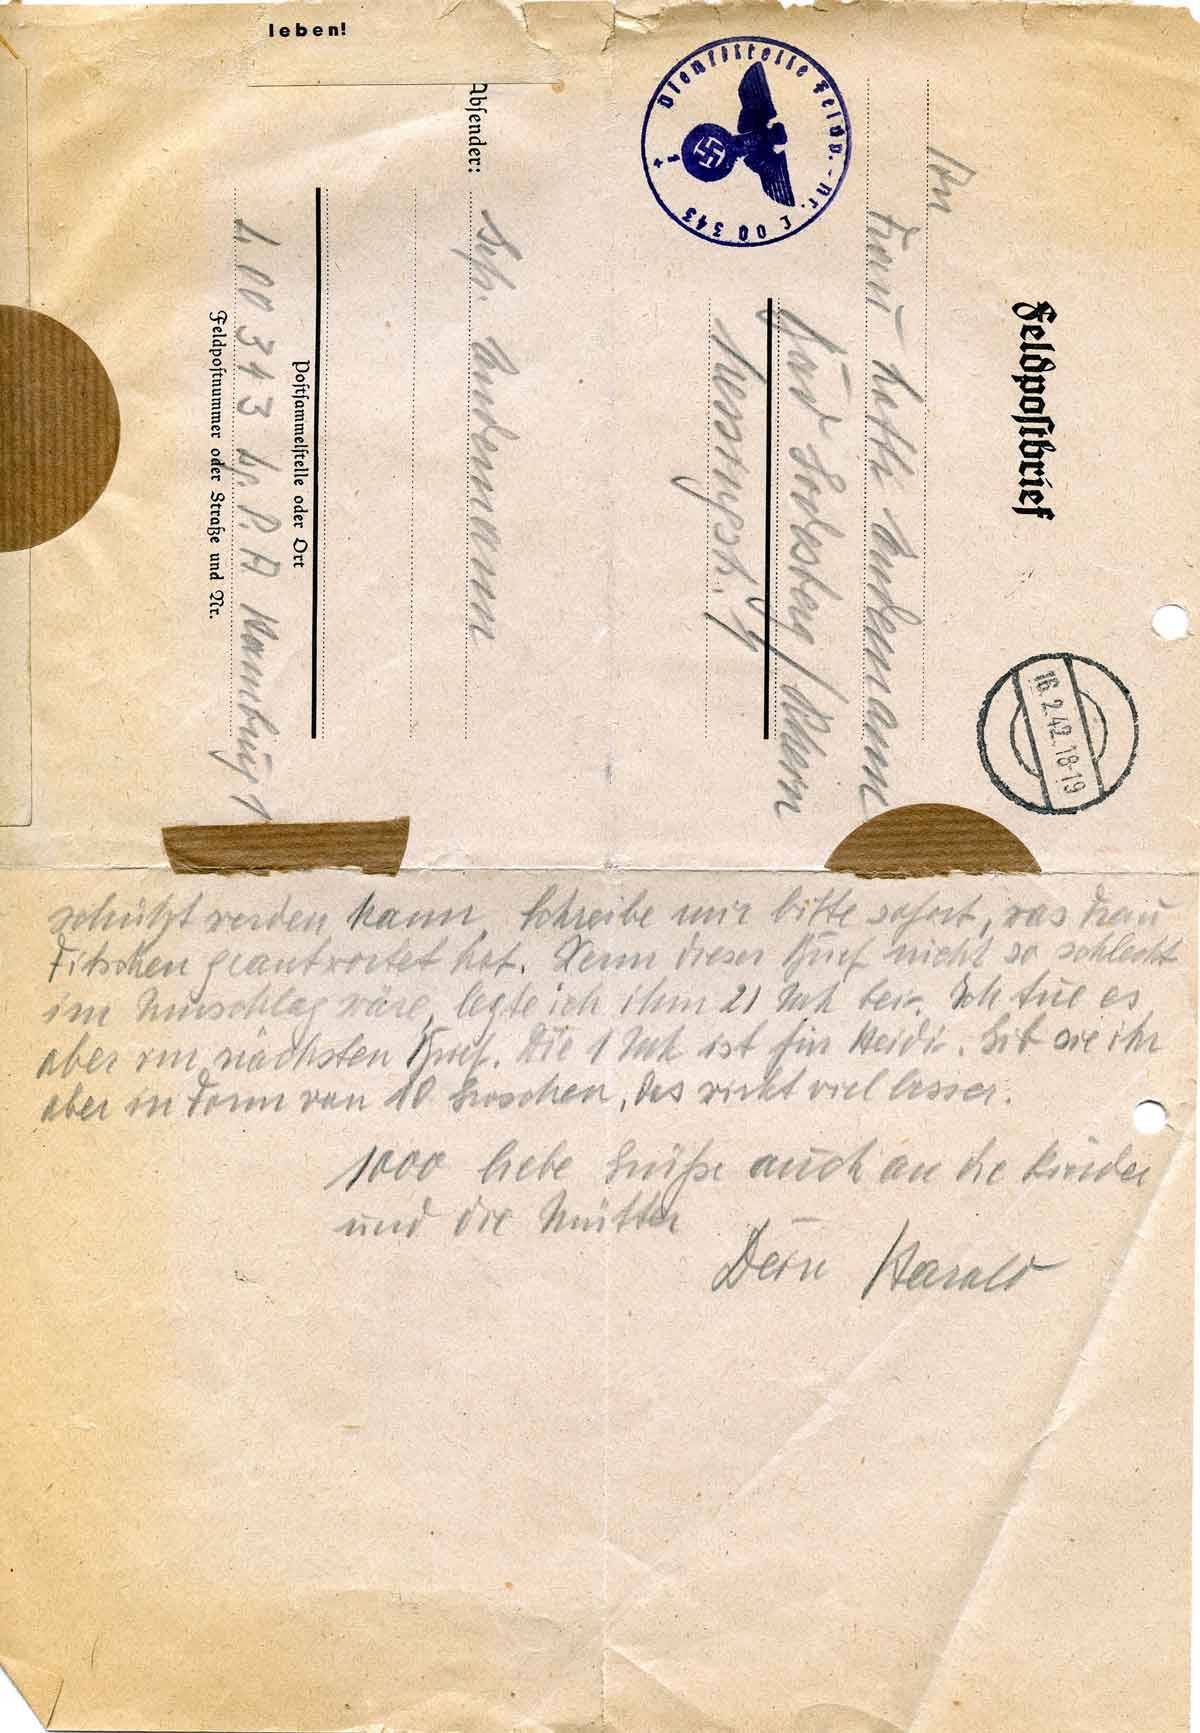 leben!
Feldpostbrief
16.2.42.18-19
Dienststelle Feldp.-Nr. L 00 343
1
An
Frau Lotte Endemann
Bad Godesberg / Rhein
Absender:
Endemann
Postsammelstelle oder Ort
L 00343 Lg. P. A Hamburg 1
Feldpostnummer oder Straße und Nr.
schützt werden kann. Schreibe mir bitte sofort, was Frau
Fitschen geantwortet hat. Wenn dieser Brief nicht so schlecht
im Umschlag wäre, legte ich ihm 21 Mk bei. Ich tue es
aber im nächsten Brief. Die 1 Mk ist für Heidi. Gib sie ihr
aber in Form von 10 Groschen, das wirkt viel besser.
1000 liebe Grüße auch an die Kinder
und die Mütter
Dein Harald